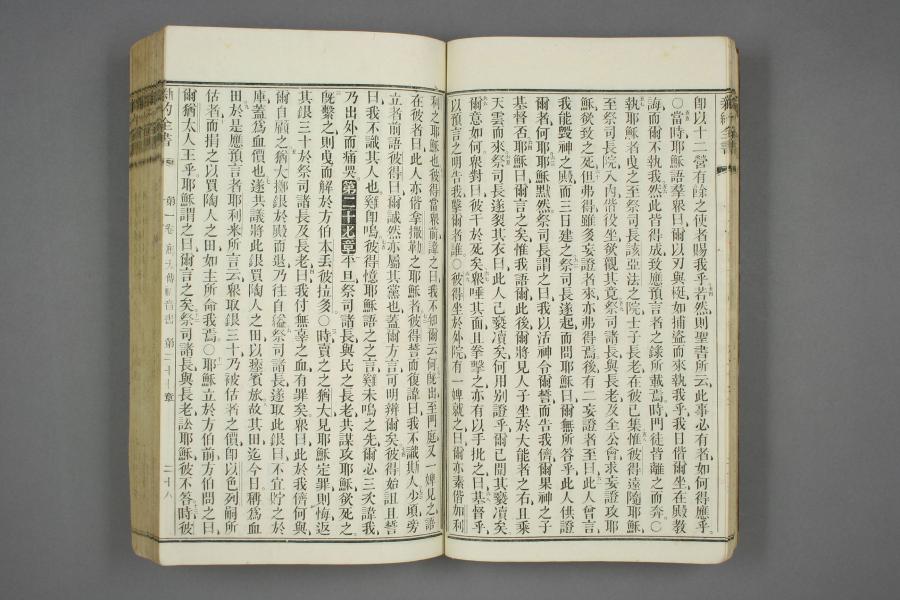 即以十二營有餘之使者賜我乎若然則聖書所云此事必有者如何得應乎
○當時耶穌語羣衆曰爾以刃與梃如捕盜而來執我乎我日偕爾坐在殿敎
誨而爾不執我然此皆得成致應預言者之錄所載焉時門徒皆離之而奔○
執耶穌者曳之至祭司長該亞法之院士子長老在彼已集惟彼得遠隨耶穌
至祭司長院入內偕役坐欲觀其竟祭司諸長與長老及全公會求妄證攻耶
穌欲致之死但弗得雖多妄證者來亦弗得焉後有二妄證者至曰此人曾言
我能毀神之殿而三日建之祭司長遂起而問耶穌曰爾無所答乎此人供證
爾者何耶耶穌默然祭司長謂之曰我以活神令爾誓而告我儕爾果神之子
基督否耶穌曰爾言之矣惟我語爾此後爾將見人子坐於大能者之右且乘
天雲而來祭司長遂裂其衣曰此人已褻瀆矣何用别證乎爾已聞其褻瀆矣
爾意如何衆對曰彼干於死矣衆唾其面且拳擊之亦有以手批之曰基督乎
以預言之明告我擊爾者誰○彼得坐於外院有一婢就之曰爾亦素偕加利
利之耶穌也彼得當衆前諱之曰我不知爾云何旣出至門庭又一婢見之語
在彼者曰此人亦偕拿撒勒之耶穌者彼得誓而復諱曰我不識斯人少頃旁
立者前語彼得曰爾誠然亦屬其黨也蓋爾方言可明辨爾矣彼得始詛且誓
曰我不識其人也雞卽鳴彼得憶耶穌語之之言雞未鳴之先爾必三次諱我
乃出外而痛哭第二十七章平旦祭司諸長與民之長老共謀攻耶穌欲死之
旣繫之則曳而解於方伯本丟彼拉多○時賣之之猶大見耶穌定罪則悔返
其銀三十於祭司諸長及長老曰我付無辜之血有罪矣衆曰此於我儕何與
爾自顧之猶大擲銀於殿而退乃往自縊祭司諸長遂取此銀曰不宜貯之於
庫蓋爲血價也遂共議將此銀買陶人之田以葬賓旅故其田迄今日稱爲血
田於是應預言者耶利米所言云衆取銀三十乃被估者之價卽以色列嗣所
估者而捐之以買陶人之田如主所命我焉○耶穌立於方伯前方伯問之曰
爾猶太人王乎耶穌謂之曰爾言之矣祭司諸長與長老訟耶穌彼不答時彼
新約全書 第一卷 馬太傳福音書 第二十七章 二十八